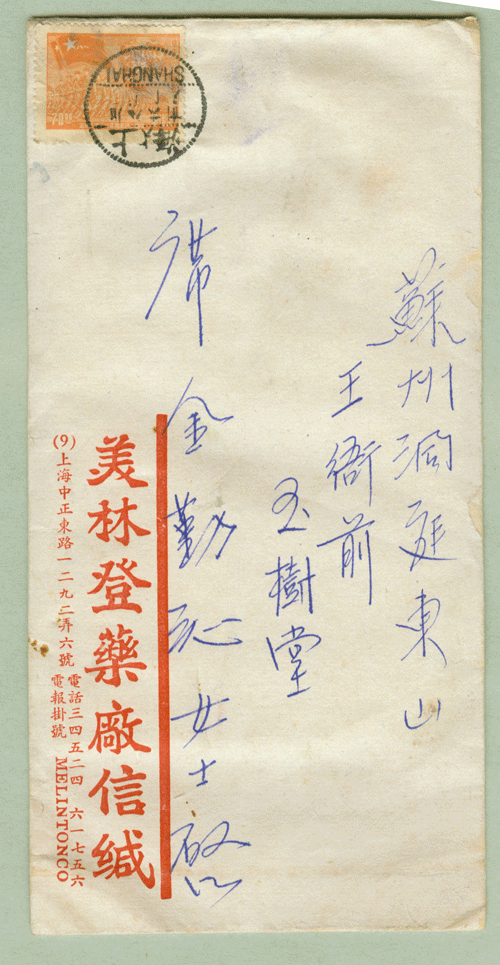 蘇州洞庭東山
王衙前
玉樹堂
席金勤心女士啓
美林登藥廠信緘
(9)上海中正東路一二九二弄六號
電話三四五二四 六一七五六
電報掛號 MELINTONCO
上海
SHANGHAI